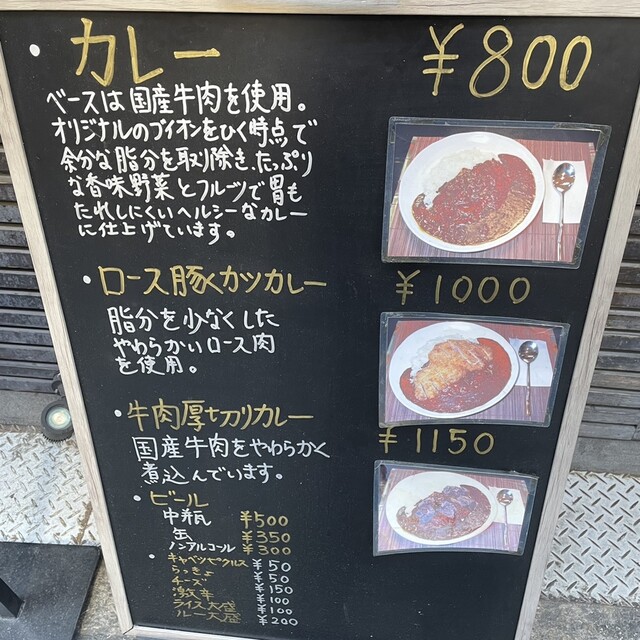 ・カレー ¥800
ベースは国産牛肉を使用。
オリジナルのブイオンをひく時点で
余分な脂分を取り除き、たっぷり
な香味野菜とフルーツで胃も
たれしにくいヘルシーなカレー
に仕上げています。
・ロース豚カツカレー ¥1000
脂分を少なくした
やわらかいロース肉
を使用。
・牛肉厚切りカレー ¥1150
国産牛肉をやわらかく
煮込んでいます。
・ビール
中瓶 ¥500
缶 ¥350
ノンアルコール ¥300
・キャベツピクルス ¥50
らっきょ ¥50
チーズ ¥150
激辛 ¥100
ライス大盛 ¥100
ルー大盛 ¥200